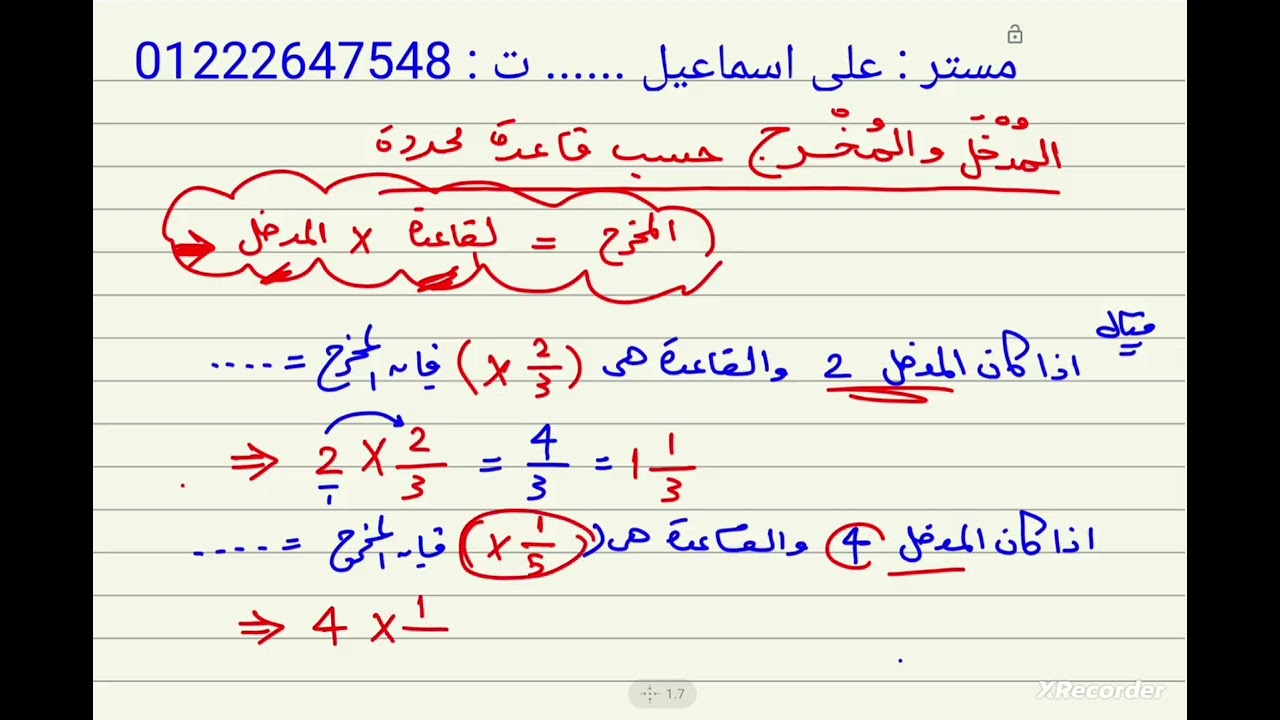 مستر : على اسماعيل ...... ت : 01222647548
المُدْخَل والمُخْرج حسب قاعدة محددة
المخرج = لقاعدة × المدخل ⇒
مثال
اذا كان المدخل 2 والقاعدة هى (× 2/3) فإن المخرج = ....
⇒ 2/1 × 2/3 = 4/3 = 1 1/3
اذا كان المدخل 4 والقاعدة هى (× 1/5) فإن المخرج = ....
⇒ 4 × 1/
1.7
XRecorder